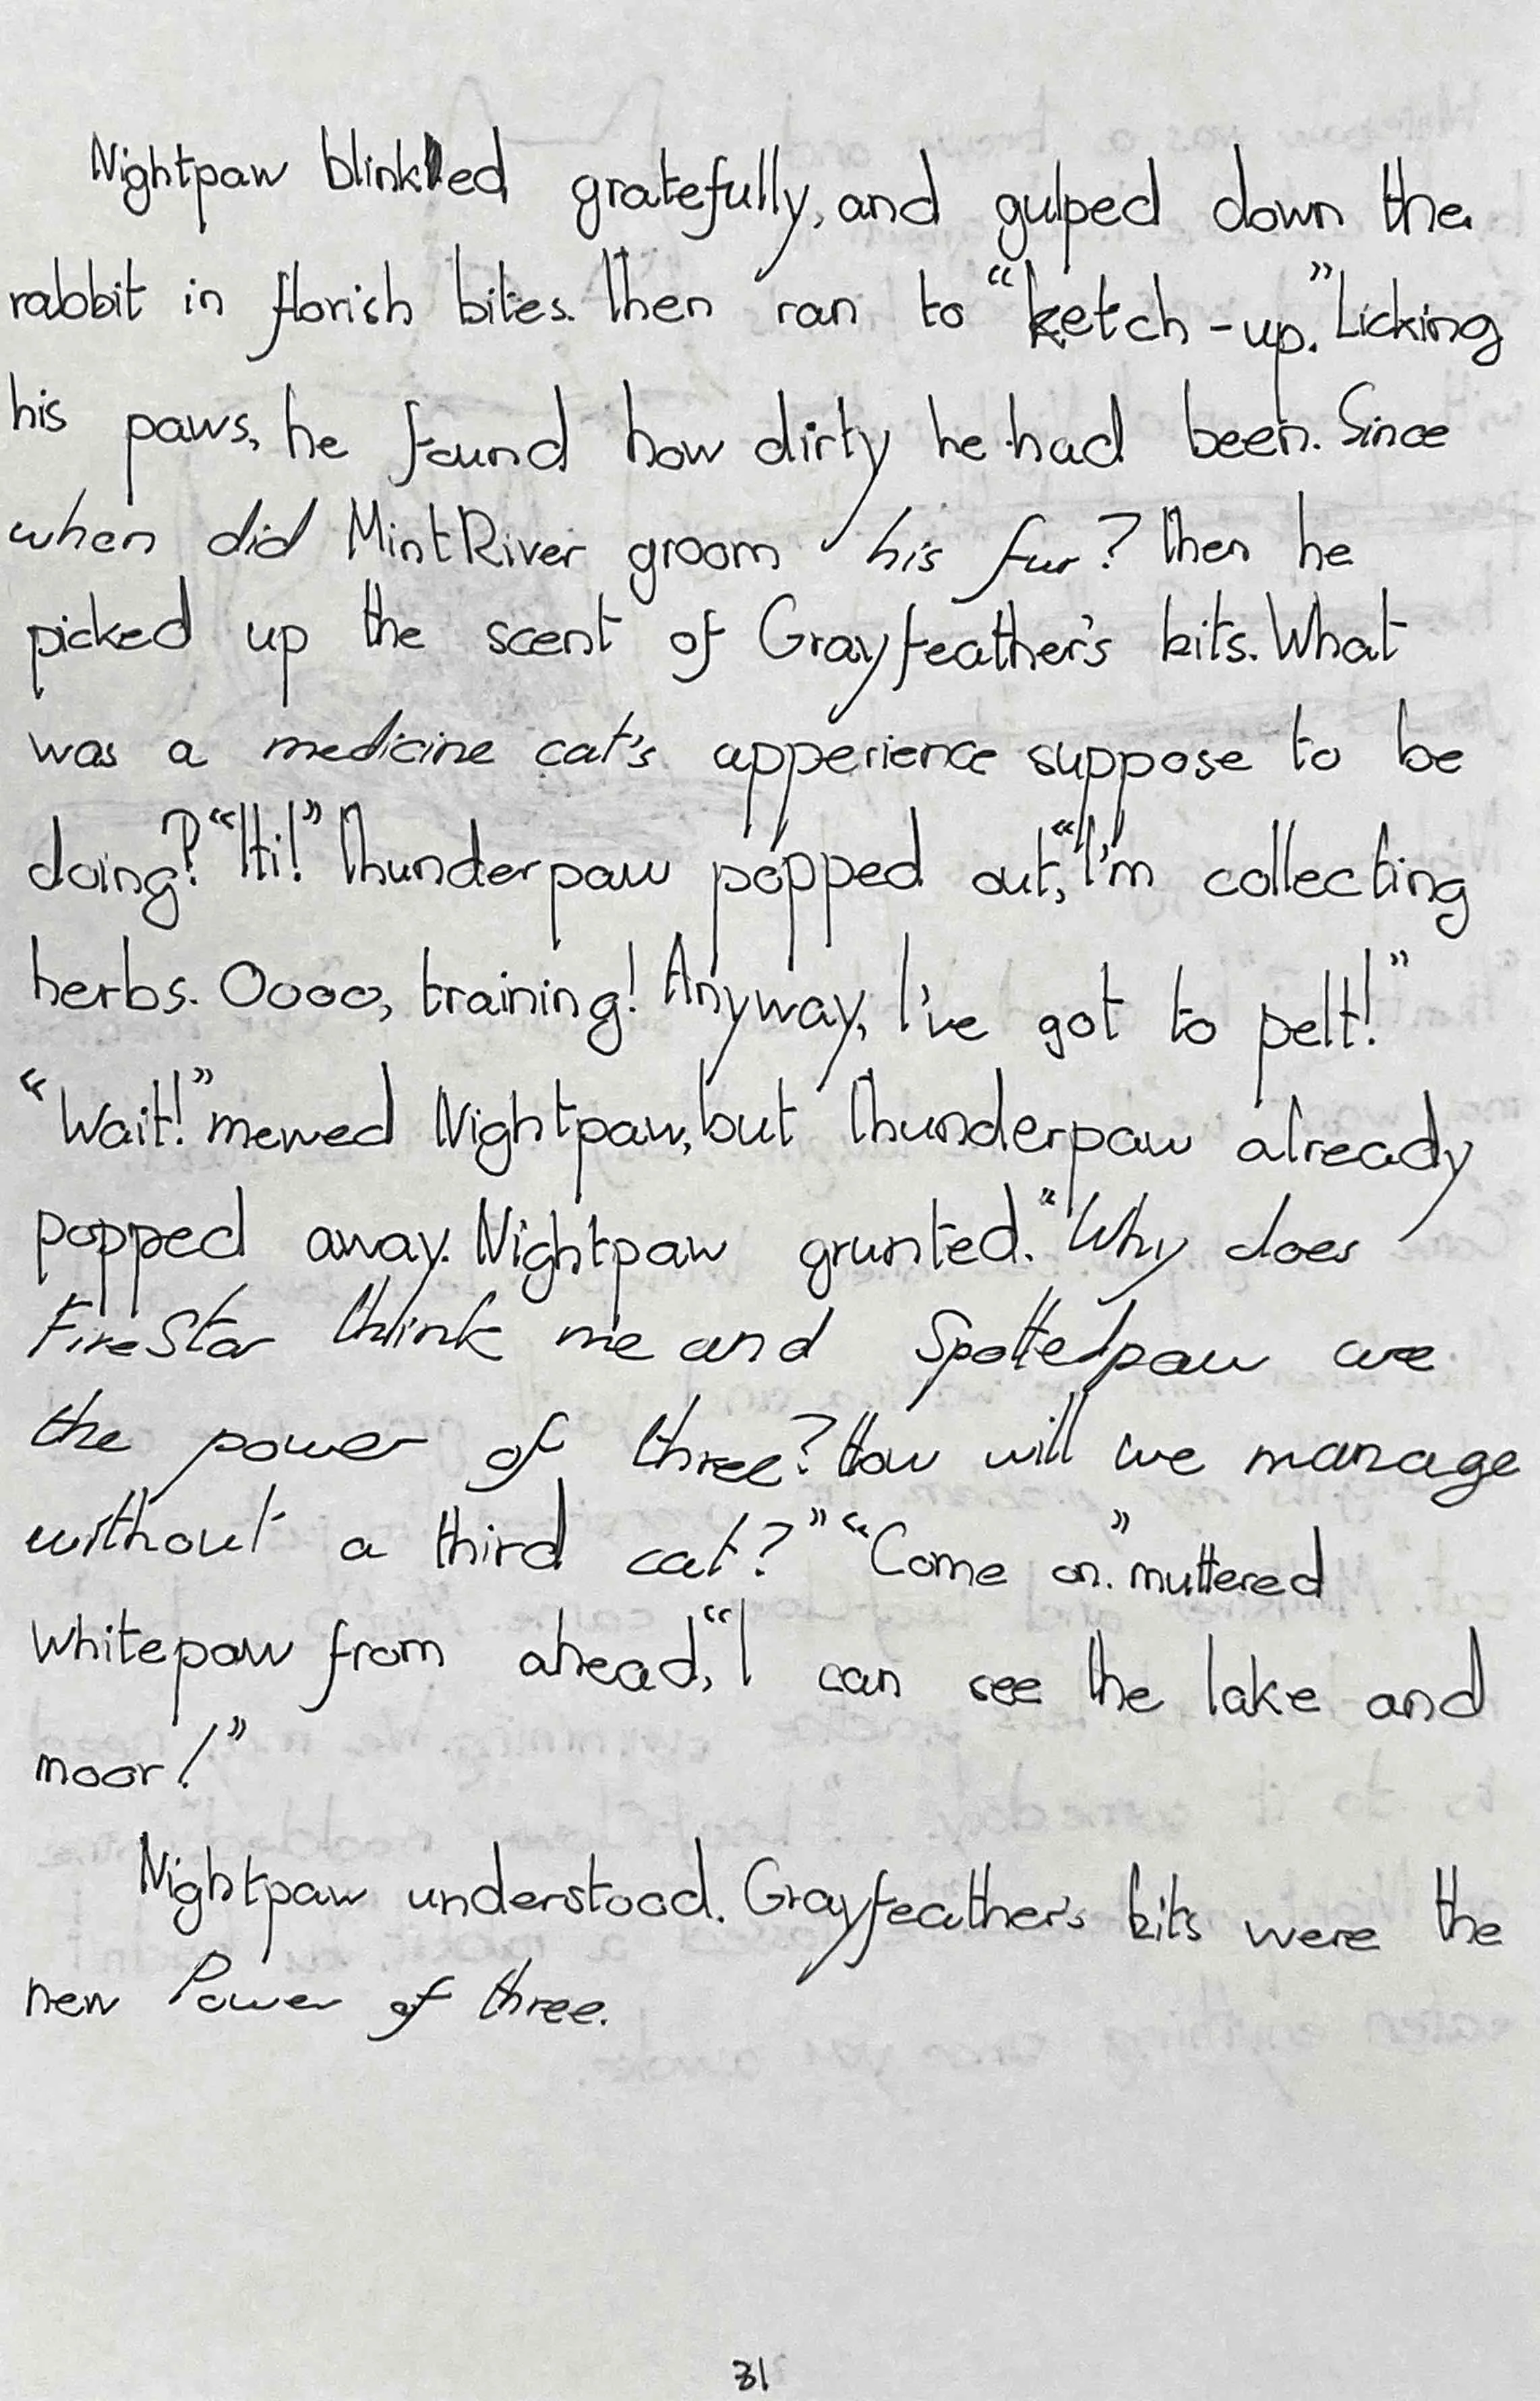 Nightpaw blinked gratefully, and gulped down the
rabbit in florish bites. Then ran to “ketch-up.” Licking
his paws, he found how dirty he had been. Since
when did MintRiver groom his fur? Then he
picked up the scent of Grayfeather's kits. What
was a medicine cat's apperience suppose to be
doing? “Hi!” Thunderpaw popped out, “I'm collecting
herbs. Oooo, training! Anyway, I've got to pelt!”
“Wait!” mewed Nightpaw, but Thunderpaw already
popped away. Nightpaw grunted. “Why does
FireStar think me and Spottedpaw are
the power of three? How will we manage
without a third cat?” “Come on.” muttered
Whitepaw from ahead, “I can see the lake and
moor!”
Nightpaw understood. Grayfeather's kits were the
new Power of three.
31